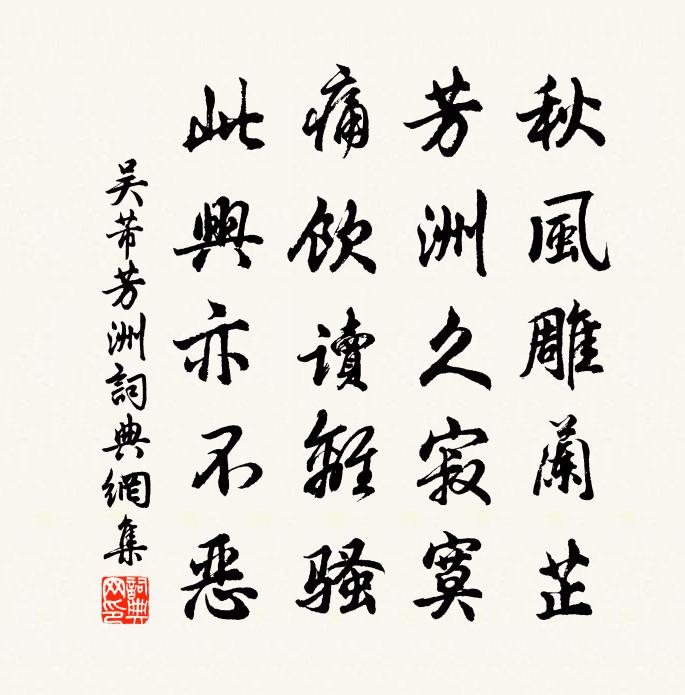 秋風雕蘭芷
芳洲久寂寞
痛飲讀離騷
此興亦不惡
吴芾芳洲詞典網集
詞典網印